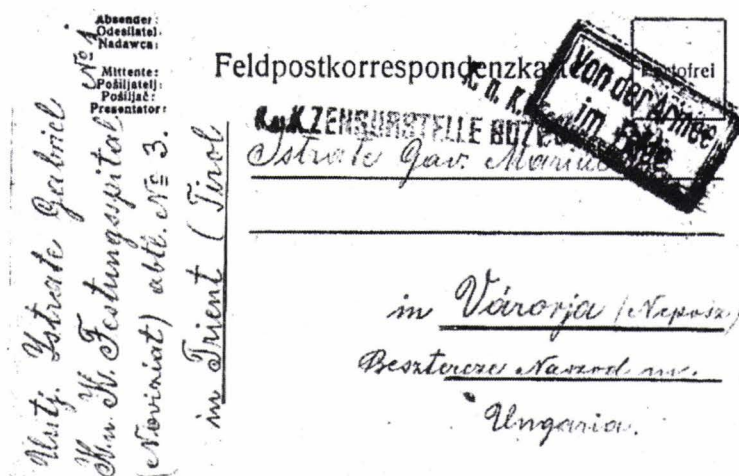 Absender:
Odesílatel:
Nadawca:
Mittente:
Pošiljatelj:
Pošiljač:
Presentator:
Istrate Gabriel
K. u. K. Festungsspital No 1
(Noviziat) abtl. No 3.
in Trient (Tirol
Feldpostkorrespondenzka
K.u.K. ZENSURSTELLE
Von der Armee
im Felde
Istrate Gav.
in Várorja
Besztercze Naszod
Ungaria.